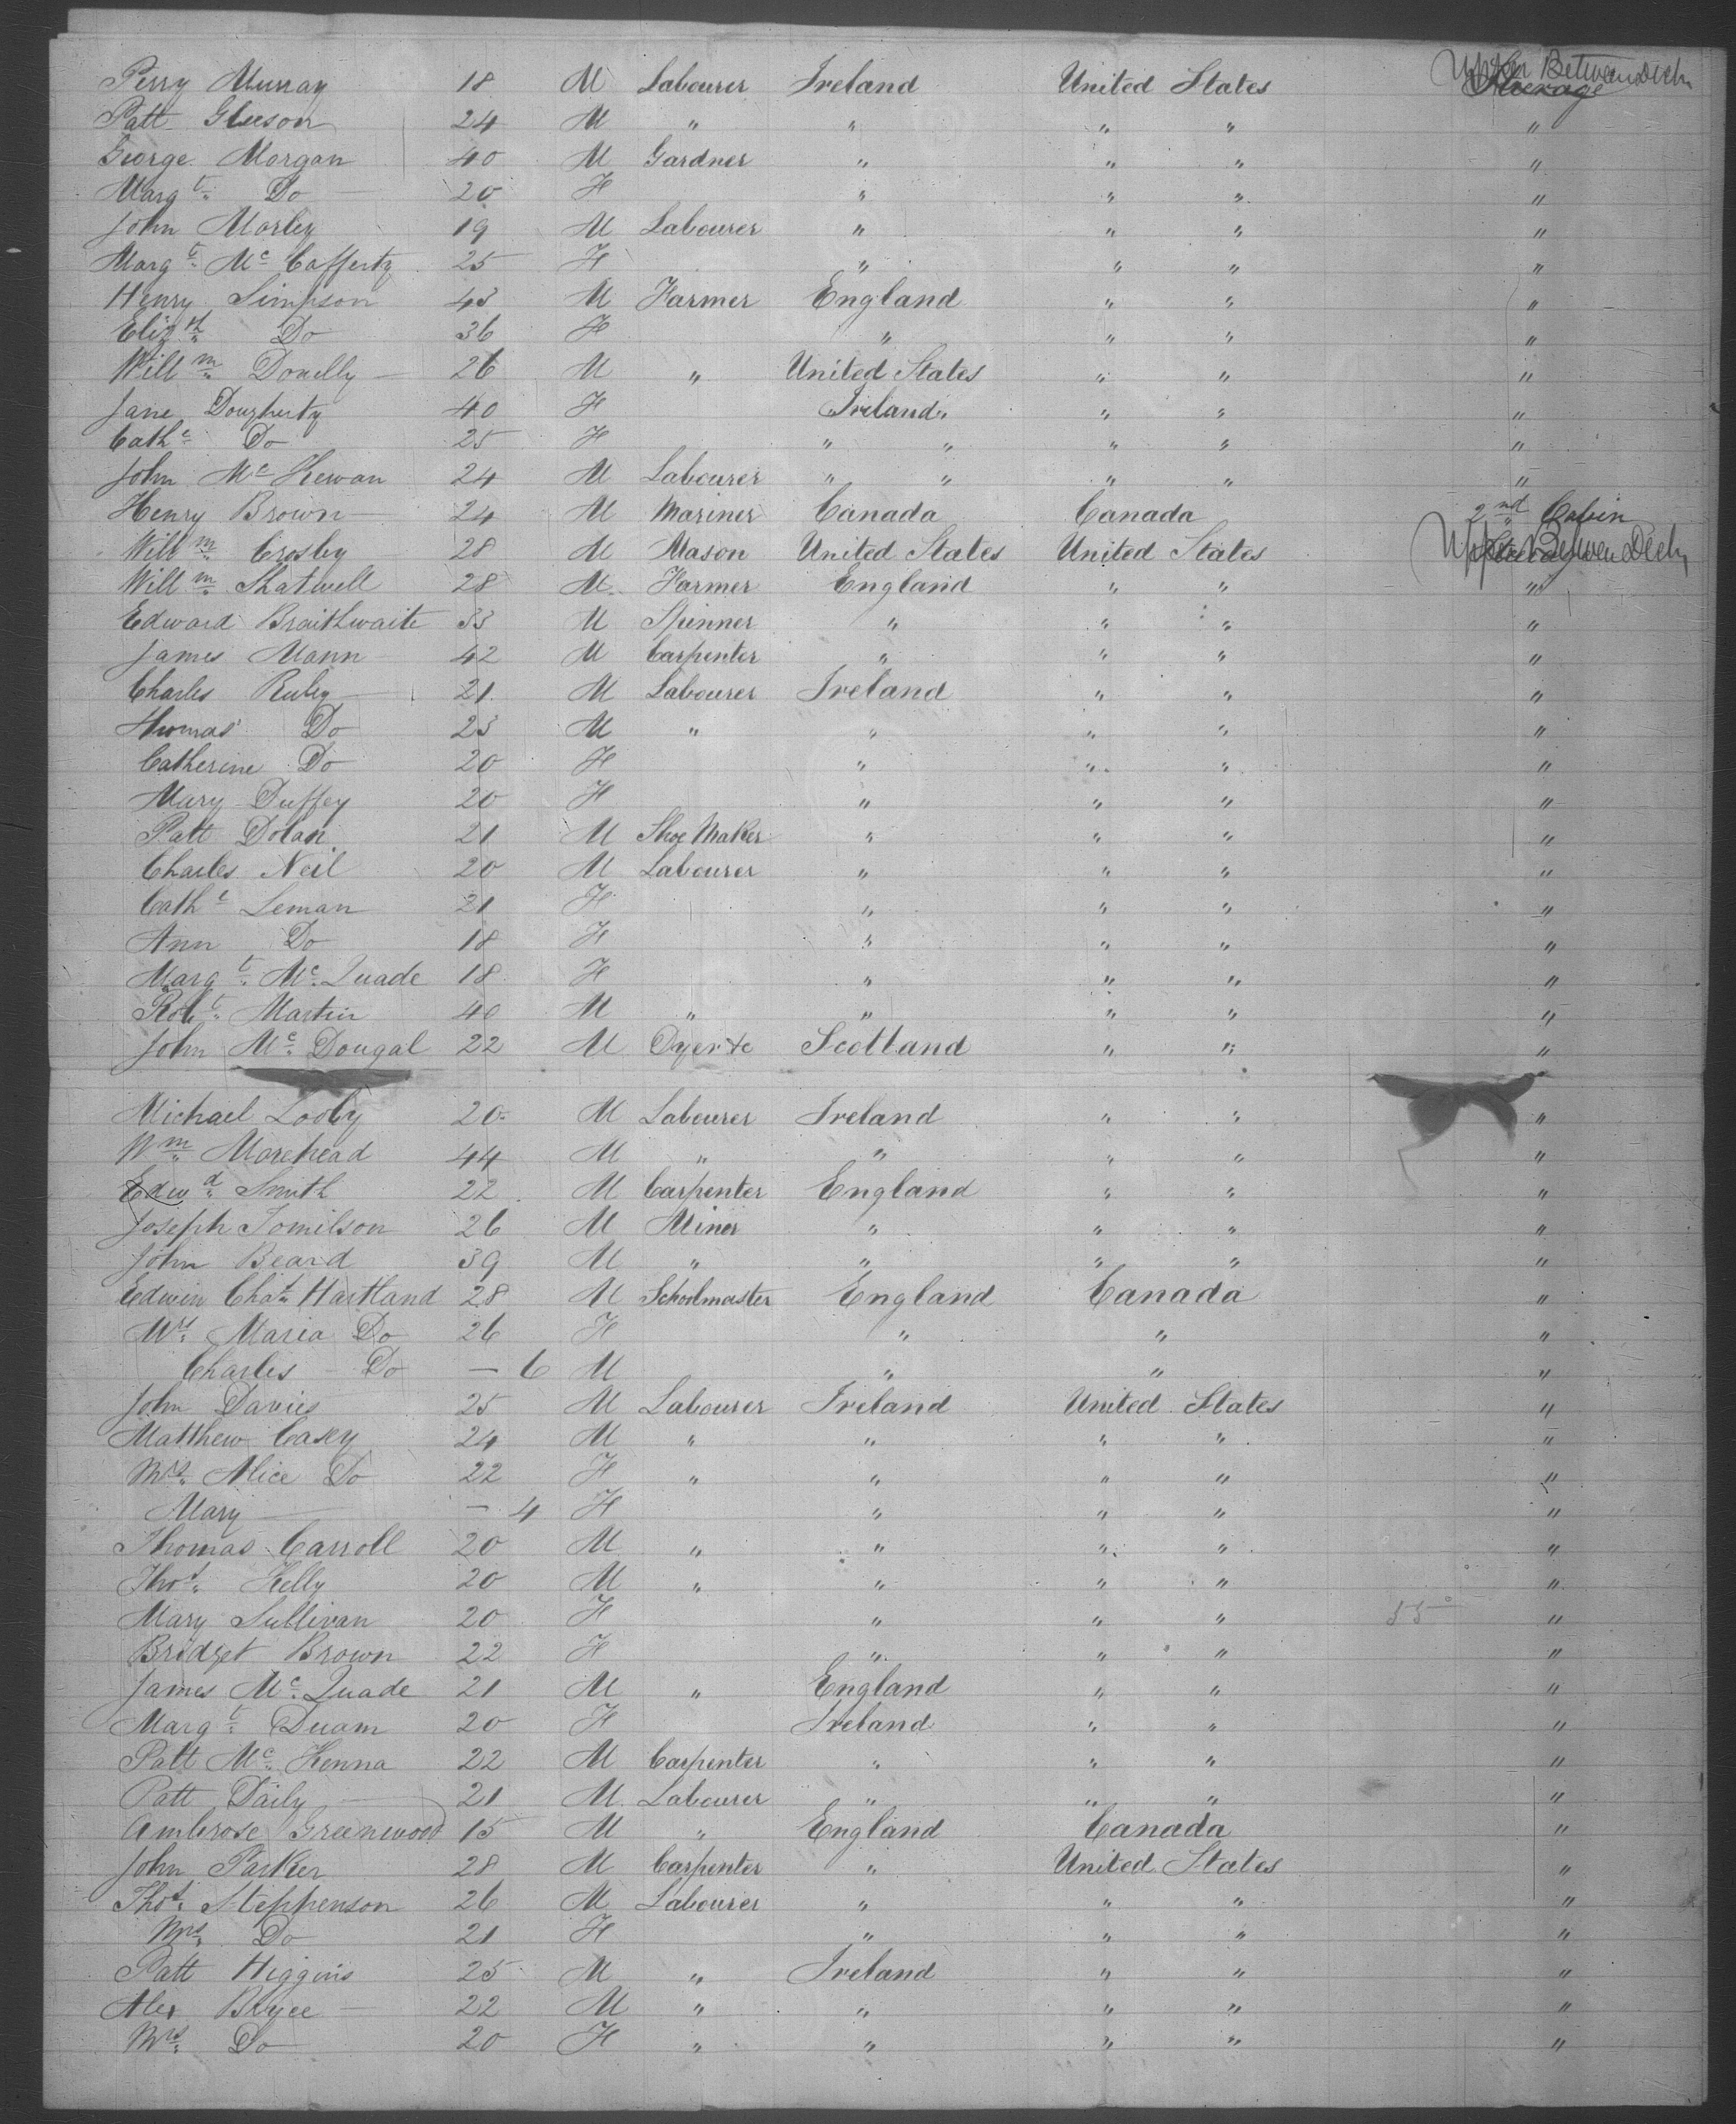 Perry Murray 18 M Labourer Ireland United States Upper Between Deck Steerage
Patt Gleeson 24 M " " " " "
George Morgan 40 M Gardner " " " "
Margt. Do — 20 F " " " "
John Morley 19 M Labourer " " " "
Margt. Mc Cafferty 25 F " " " "
Henry Simpson 43 M Farmer England " " "
Elizth. Do 36 F " " " "
Willm. Donelly — 26 M " United States " " "
Jane Dougherty 40 F Ireland " " " "
Cathe Do 25 F " " " " "
John Mc Kewan 24 M Labourer " " " " "
Henry Brown — 24 M Mariner Canada Canada 2nd Cabin
Willm. Crosby 28 M Mason United States United States Upper Between Deck
Willm. Shatwell 28 M Farmer England " " "
Edward Braithwaite 33 M Spinner " " " "
James Mann 42 M Carpenter " " " "
Charles Ruby 21 M Labourer Ireland " " "
Thomas Do 23 M " " " " "
Catherine Do 20 F " " " "
Mary Duffey 20 F " " " "
Patt Dolan 21 M Shoe Maker " " " "
Charles Neil 20 M Labourer " " " "
Cathe Leman 21 F " " " "
Ann Do 18 F " " " "
Margt. Mc. Quade 18 F " " " "
Robt. Martin 40 M " " " " "
John Mc. Dougal 22 M Dyer &c Scotland " " "
"
Michael Looby 20 M Labourer Ireland " " "
Wm. Morehead 44 M " " " " "
Edwd. Smith 22 M Carpenter England " " "
Joseph Tomilson 26 M Miner " " " "
John Beard 39 M " " " " "
Edwin Chas. Hartland 28 M Schoolmaster England Canada "
Mrs. Maria Do 26 F " " "
Charles — Do — 6 M " " "
John Davies 25 M Labourer Ireland United States "
Matthew Casey 24 M " " " " "
Mrs. Alice Do 22 F " " " " "
Mary — — 4 F " " " "
Thomas Carroll 20 M " " " " "
Thos. Kelly 20 M " " " " "
Mary Sullivan 20 F " " " 55 "
Bridget Brown 22 F " " " "
James Mc. Quade 21 M " England " " "
Margt. Duam 20 F Ireland " " "
Patt Mc. Kenna 22 M Carpenter " " " "
Patt Daily — 21 M Labourer " " " "
Ambrose Greenwood 15 M " England Canada "
John Parker 28 M Carpenter " United States "
Thos. Steppenson 26 M Labourer " " " "
Mrs. Do 21 F " " " "
Patt Higgins 25 M " Ireland " " "
Alex Bryce — 22 M " " " " "
Mrs. Do — 20 F " " " " "